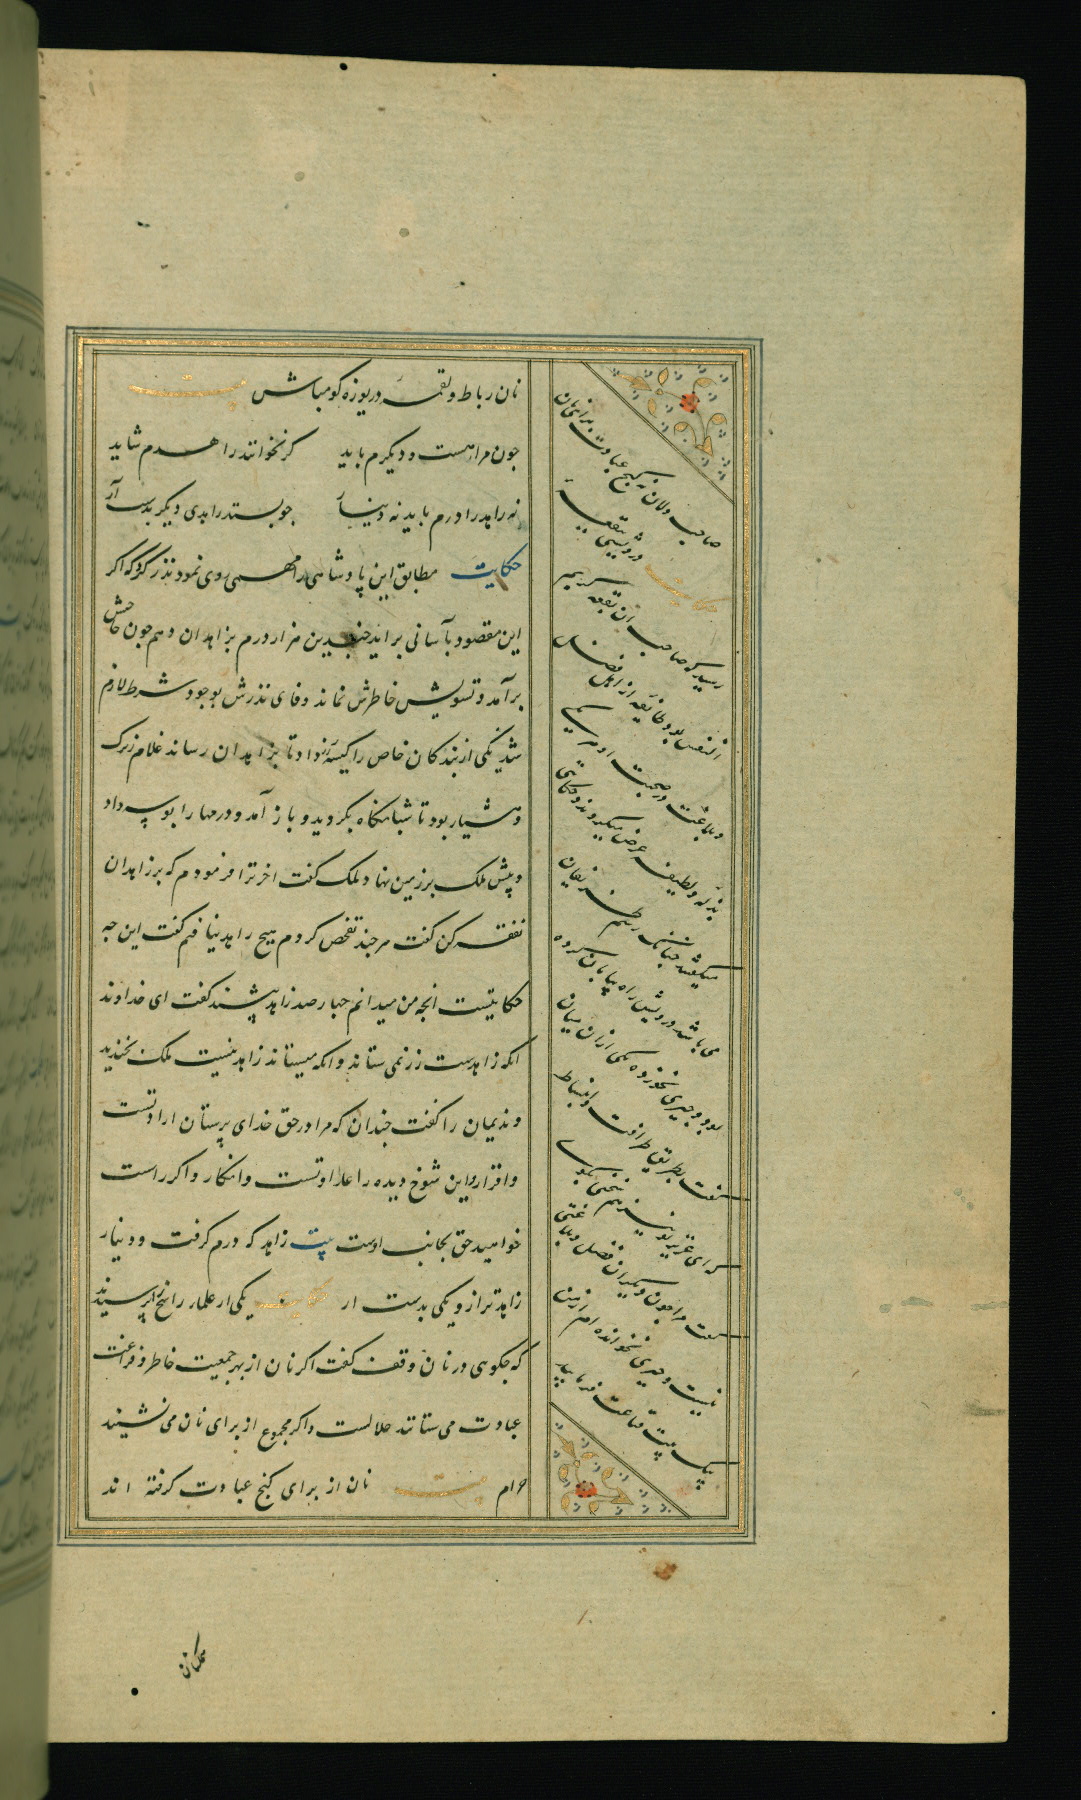 نان رباط و لقمه دریوزه کو مباش بیت
جون مرا هست و دیکرم باید کر نخوانند زاهدم شاید
نه زاهد را درم باید نه دینار جو بستد زاهدی دیکر بدست آر
حکایت مطابق این پادشاهی را مهمی روی نمود نذر کرد که اکر
این مقصود بآسانی برآید جندین هزار درم بزاهدان دهم جون حاجتش
برآمد و تشویش خاطرش نماند وفای نذرش بوجود شرط لازم
شد یکی از بندکان خاص را کیسه داد تا بزاهدان رساند غلام زیرک
و هشیار بود تا شبانکاه بکردید و باز آمد و درمها را بوسه داد
و پیش ملک بر زمین نهاد ملک کفت اخر ترا فرمودم که بر زاهدان
نفقه کن کفت هر جند تفحص کردم هیچ زاهد نیافتم کفت این جه
حکایتست انجه من میدانم جهارصد زاهد بیشند کفت ای خداوند
انکه زاهدست زر نمی ستاند و انکه میستاند زاهد نیست ملک بخندید
و ندیمان را کفت جندان که مرا در حق خدای پرستان ارادتست
و اقرار و این شوخ دیده را عداوتست و انکار و اکر راست
خواهید حق بجانب اوست بیت زاهد که درم کرفت و دینار
زاهدتر ازو یکی بدست ار حکایت یکی از علماء راسخ را پرسیدند
که جکویی در نان وقف کفت اکر نان از بهر جمعیت خاطر و فراغت
عبادت می ستانند حلالست و اکر مجموع از برای نان می نشینند
حرام بیت نان از برای کنج عبادت کرفته اند
صاحب دلان نه کنج عبادت برای نان
حکایت درویشی ببقعه
رسید که صاحب ان بقعه کریم
النفس بود طایفه از اهل فضل
و بلاغت در صحبت او هر یکی
بذله و لطیفه
میکفتند جنانکه رسم ظریفان
می باشد درویش راه بیابان کرده
بود و جیزی نخورده یکی از ان میان
کفت بطریق ظرافت و انبساط
که ای عزیز ترا نیز هم سخنی بکو
کفت مرا جون دیکران فضل و بلاغتی
نیست و جیزی نخوانده ام از من
بیک بیت قناعت فرمایید